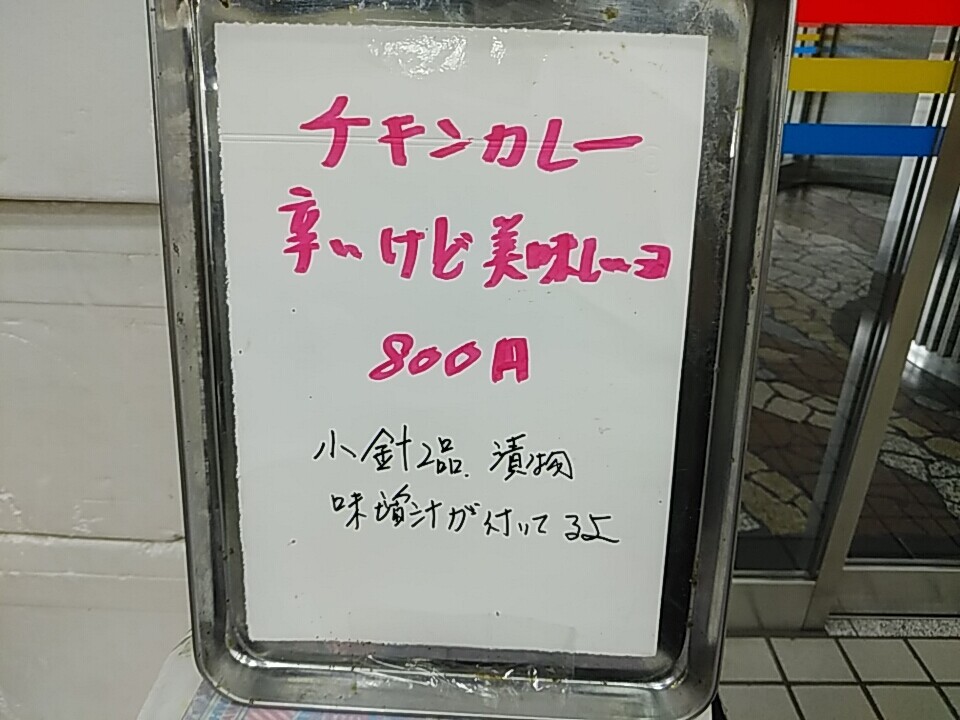 チキンカレー
辛いけど美味しいヨ
800円
小針2品、漬物
味噌汁が付いてるよ